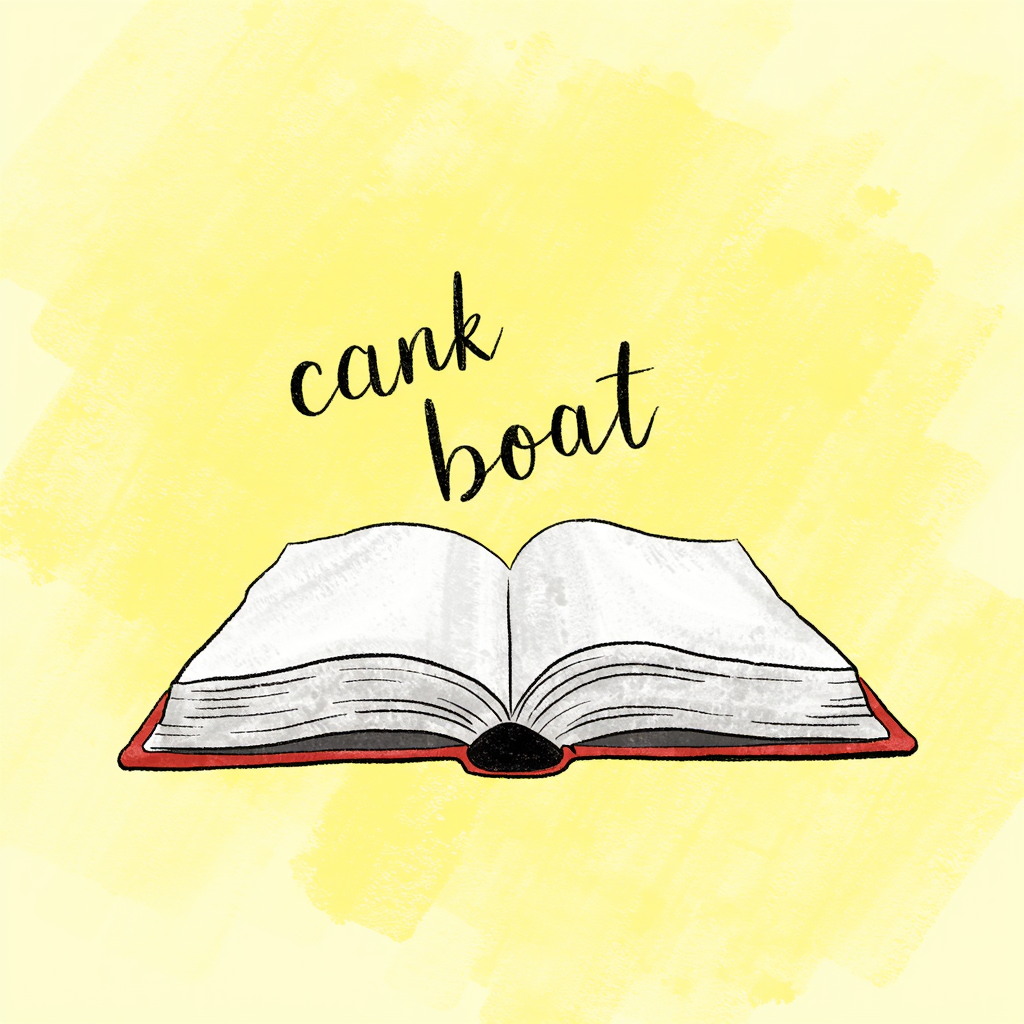 cank
boat